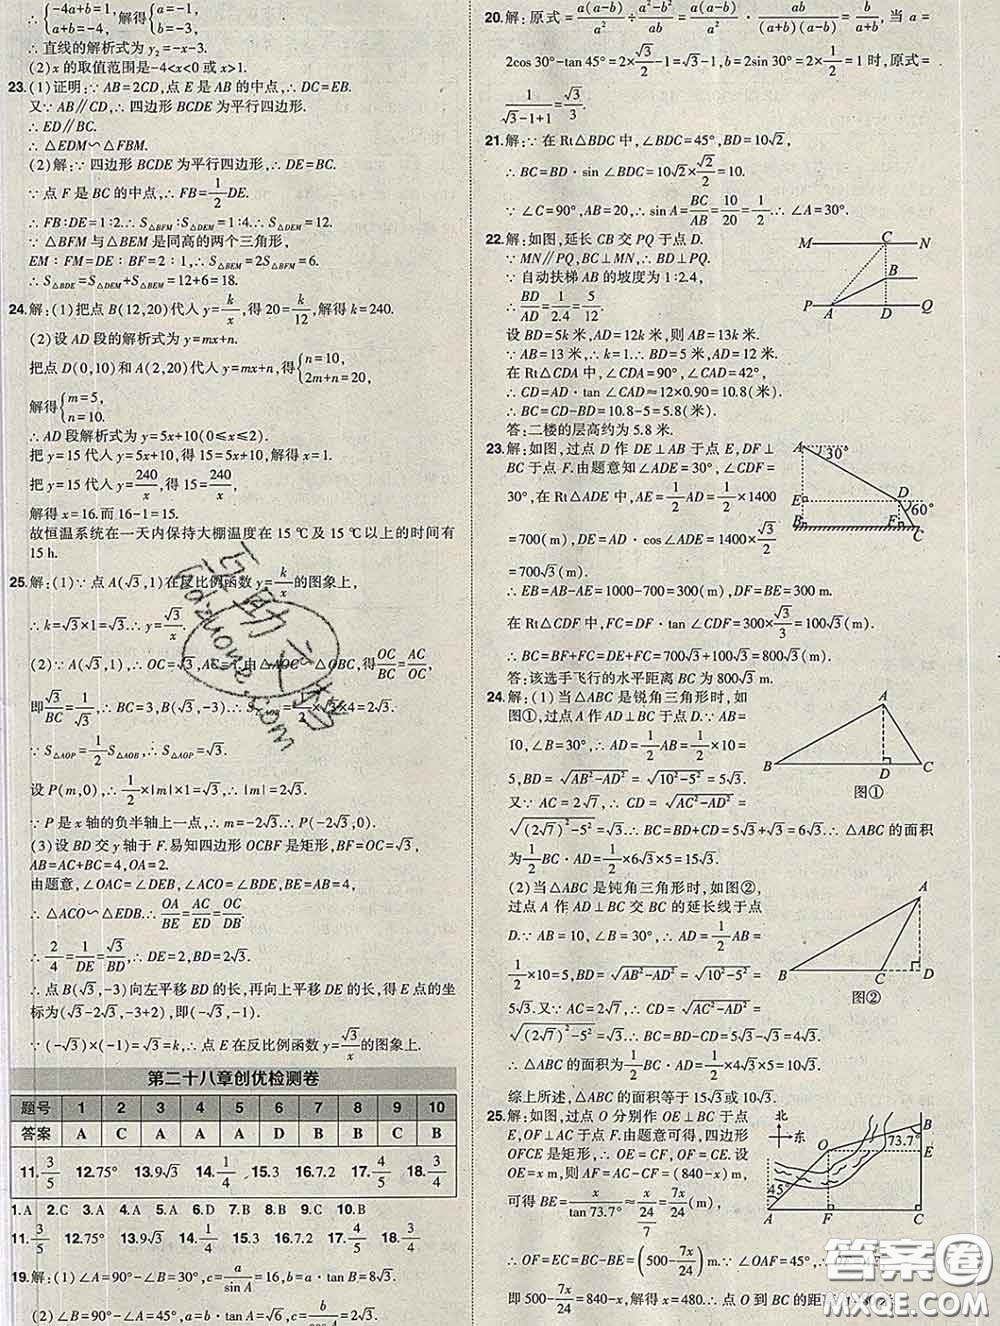 ∴{-4a+b=1, a+b=-4, 解得{a=-1, b=-3,
∴ 直线的解析式为 y₂=-x-3.
(2)x 的取值范围是-4<x<0 或 x>1.
23.(1)证明:∵ AB=2CD,点 E 是 AB 的中点,∴ DC=EB.
又∵ AB∥CD,∴ 四边形 BCDE 为平行四边形.
∴ ED∥BC.
∴ △EDM∽△FBM.
(2)解:∵ 四边形 BCDE 为平行四边形,∴ DE=BC.
∵ 点 F 是 BC 的中点,∴ FB=1/2 DE.
∴ FB:DE=1:2.∴ S△BFM:S△DEM=1:4.∴ S△DEM=12.
∵ △BFM 与△BEM 是同高的两个三角形,
EM:FM=DE:BF=2:1,∴ S△BEM=2S△BFM=6.
∴ S△BDE=S△DEM+S△BEM=12+6=18.
24.解:(1)把点 B(12,20)代入 y=k/x,得 20=k/12,解得 k=240.
(2)设 AD 段的解析式为 y=mx+n.
把点 D(0,10)和 A(2,20)代入 y=mx+n,得{n=10, 2m+n=20,
解得{m=5, n=10.
∴ AD 段解析式为 y=5x+10(0≤x≤2).
把 y=15 代入 y=5x+10,得 15=5x+10,解得 x=1.
把 y=15 代入 y=240/x,得 15=240/x,
解得 x=16.而 16-1=15.
故恒温系统在一天内保持大棚温度在 15 ℃及 15 ℃以上的时间有
15 h.
25.解:(1)∵ 点 A(√3,1)在反比例函数 y=k/x的图象上,
∴ k=√3×1=√3.∴ y=√3/x.
(2)∵ A(√3,1),∴ OC=√3,AC=1.由△AOC∽△OBC,得OC/BC=AC/OC,
即√3/BC=1/√3.∴ BC=3,B(√3,-3).∴ S△AOB=1/2×√3×4=2√3.
∵ S△AOP=1/2 S△AOB,∴ S△AOP=√3.
设 P(m,0),∴ 1/2×|m|×1=√3,∴ |m|=2√3.
∵ P 是 x 轴的负半轴上一点,∴ m=-2√3.∴ P(-2√3,0).
(3)设 BD 交 y 轴于 F.易知四边形 OCBF 是矩形,BF=OC=√3,
AB=AC+BC=4,OA=2.
由题意,∠OAC=∠DEB,∠ACO=∠BDE,BE=AB=4,
∴ △ACO∽△EDB.∴ OA/BE=AC/ED=OC/DB.
∴ 2/4=1/DE=√3/BD,∴ DE=2,BD=2√3.
∴ 点 B(√3,-3)向左平移 BD 的长,再向上平移 DE 的长,得 E 点的坐
标为(√3-2√3,-3+2),即(-√3,-1).
∵ (-√3)×(-1)=√3=k,∴ 点 E 在反比例函数 y=√3/x的图象上.
第二十八章创优检测卷
题号 1 2 3 4 5 6 7 8 9 10
答案 A C A A A D B B C B
11.3/5 12.75° 13.9√3 14.1/4 15.3 16.7.2 17.4/5 18.3/4
1.A 2.C 3.A 4.A 5.A 6.D 7.B 8.B 9.C 10.B
11.3/5 12.75° 13.9√3 14.1/4 15.3 16.7.2 17.4/5 18.3/4
19.解:(1)∠A=90°-∠B=30°,c=a/sin A=16,b=a·tan B=8√3.
(2)∠B=90°-∠A=45°,a=b·tan A=√6,c=
20.解:原式=a(a-b)/a²÷(a²-b²)/a=a(a-b)/a²·a/(a+b)(a-b)=1/(a+b),当 a=
2cos 30°-tan 45°=2×√3/2-1=√3-1,b=2sin 30°=2×1/2=1 时,原式=
1/(√3-1+1)=√3/3.
21.解:∵ 在 Rt△BDC 中,∠BDC=45°,BD=10√2,
∴ BC=BD·sin ∠BDC=10√2×√2/2=10.
∵ ∠C=90°,AB=20,∴ sin A=BC/AB=10/20=1/2.∴ ∠A=30°.
22.解:如图,延长 CB 交 PQ 于点 D.
∵ MN∥PQ,BC⊥MN,∴ BD⊥PQ.
∵ 自动扶梯 AB 的坡度为 1:2.4,
∴ BD/AD=1/2.4=5/12.
设 BD=5k 米,AD=12k 米,则 AB=13k 米.
∵ AB=13 米,∴ k=1.∴ BD=5 米,AD=12 米.
在 Rt△CDA 中,∠CDA=90°,∠CAD=42°,
∴ CD=AD·tan ∠CAD≈12×0.90=10.8(米).
∴ BC=CD-BD=10.8-5=5.8(米).
答:二楼的层高约为 5.8 米.
M C N
B
P A D Q
23.解:如图,过点 D 作 DE⊥AB 于点 E,DF⊥
BC 于点 F.由题意知∠ADE=30°,∠CDF=
30°,在 Rt△ADE 中,AE=1/2 AD=1/2×1400
=700(m),DE=AD·cos ∠ADE=1400×√3/2
=700√3(m).
∴ EB=AB-AE=1000-700=300(m),DF=BE=300 m.
在 Rt△CDF 中,FC=DF·tan ∠CDF=300×√3/3=100√3(m).
∴ BC=BF+FC=DE+FC=700√3+100√3=800√3(m).
答:该选手飞行的水平距离 BC 为 800√3 m.
A 30°
E D
60°
B F C
24.解:(1)当△ABC 是锐角三角形时,如
图①,过点 A 作 AD⊥BC 于点 D.∵ AB=
10,∠B=30°,∴ AD=1/2 AB=1/2×10=
5,BD=√(AB²-AD²)=√(10²-5²)=5√3.
又∵ AC=2√7,∴ CD=√(AC²-AD²)=
√((2√7)²-5²)=√3.∴ BC=BD+CD=5√3+√3=6√3.∴ △ABC 的面积
为1/2 BC·AD=1/2×6√3×5=15√3.
A
B D C
图①
(2)当△ABC 是钝角三角形时,如图②,
过点 A 作 AD⊥BC 交 BC 的延长线于点
D.∵ AB=10,∠B=30°,∴ AD=1/2 AB=
1/2×10=5,BD=√(AB²-AD²)=√(10²-5²)=
5√3.又∵ AC=2√7,∴ CD=√(AC²-AD²)=
√((2√7)²-5²)=√3.∴ BC=BD-CD=5√3-√3=4√3.
∴ △ABC 的面积为1/2 BC·AD=1/2×4√3×5=10√3.
综上所述,△ABC 的面积等于 15√3或 10√3.
A
B C D
图②
25.解:如图,过点 O 分别作 OE⊥BC 于点
E,OF⊥AC 于点 F.由题意可得,四边形
OFCE 是矩形,∴ OE=CF,OF=CE.设
OE=x m,则 AF=AC-CF=(840-x)m.
可得 BE=x/tan73.7°≈x/(24/7)=7x/24(m).
∴ OF=EC=BC-BE=(500-7x/24)m.∵ ∠OAF=45°,
即 500-7x/24=840-x,解得 x=480.∴ 点 O 到 BC 的距
北
东
O B
73.7° E
45°
A F C
互助云答
Edazuone.com
答案圈
MXQE.COM